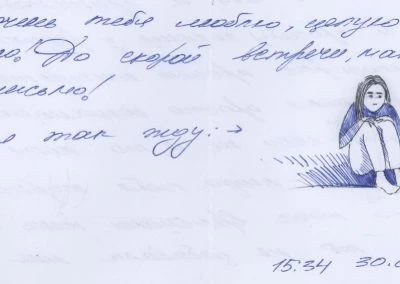 тебя люблю, целую
о! До скорой встречи,
письмо!
так жду: →
15.34 30.0